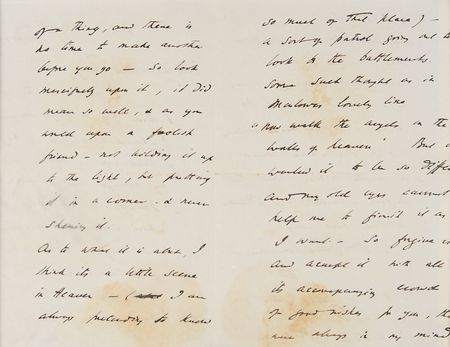 of a thing, and there is
no time to make another
before you go — So look
mercifully upon it, it did
mean so well, & as you
would upon a foolish
friend — not holding it up
to the light, but putting
it in a corner & never
showing it.
As to what it is about, I
think its a little scene
in Heaven — ( I am
always pretending to know
so much of that place) —
a sort of patrol going out to
look to the battlements.
Some such thought as in
Marlowes lovely line
"Now walk the angels on the
walls of heaven" But I
wanted it to be so diffe
And my old eyes cannot
help me to finish it as
I want — So forgive it
And accept it with all
its accompanying crowd
of good wishes to you, tha
were always in my mind